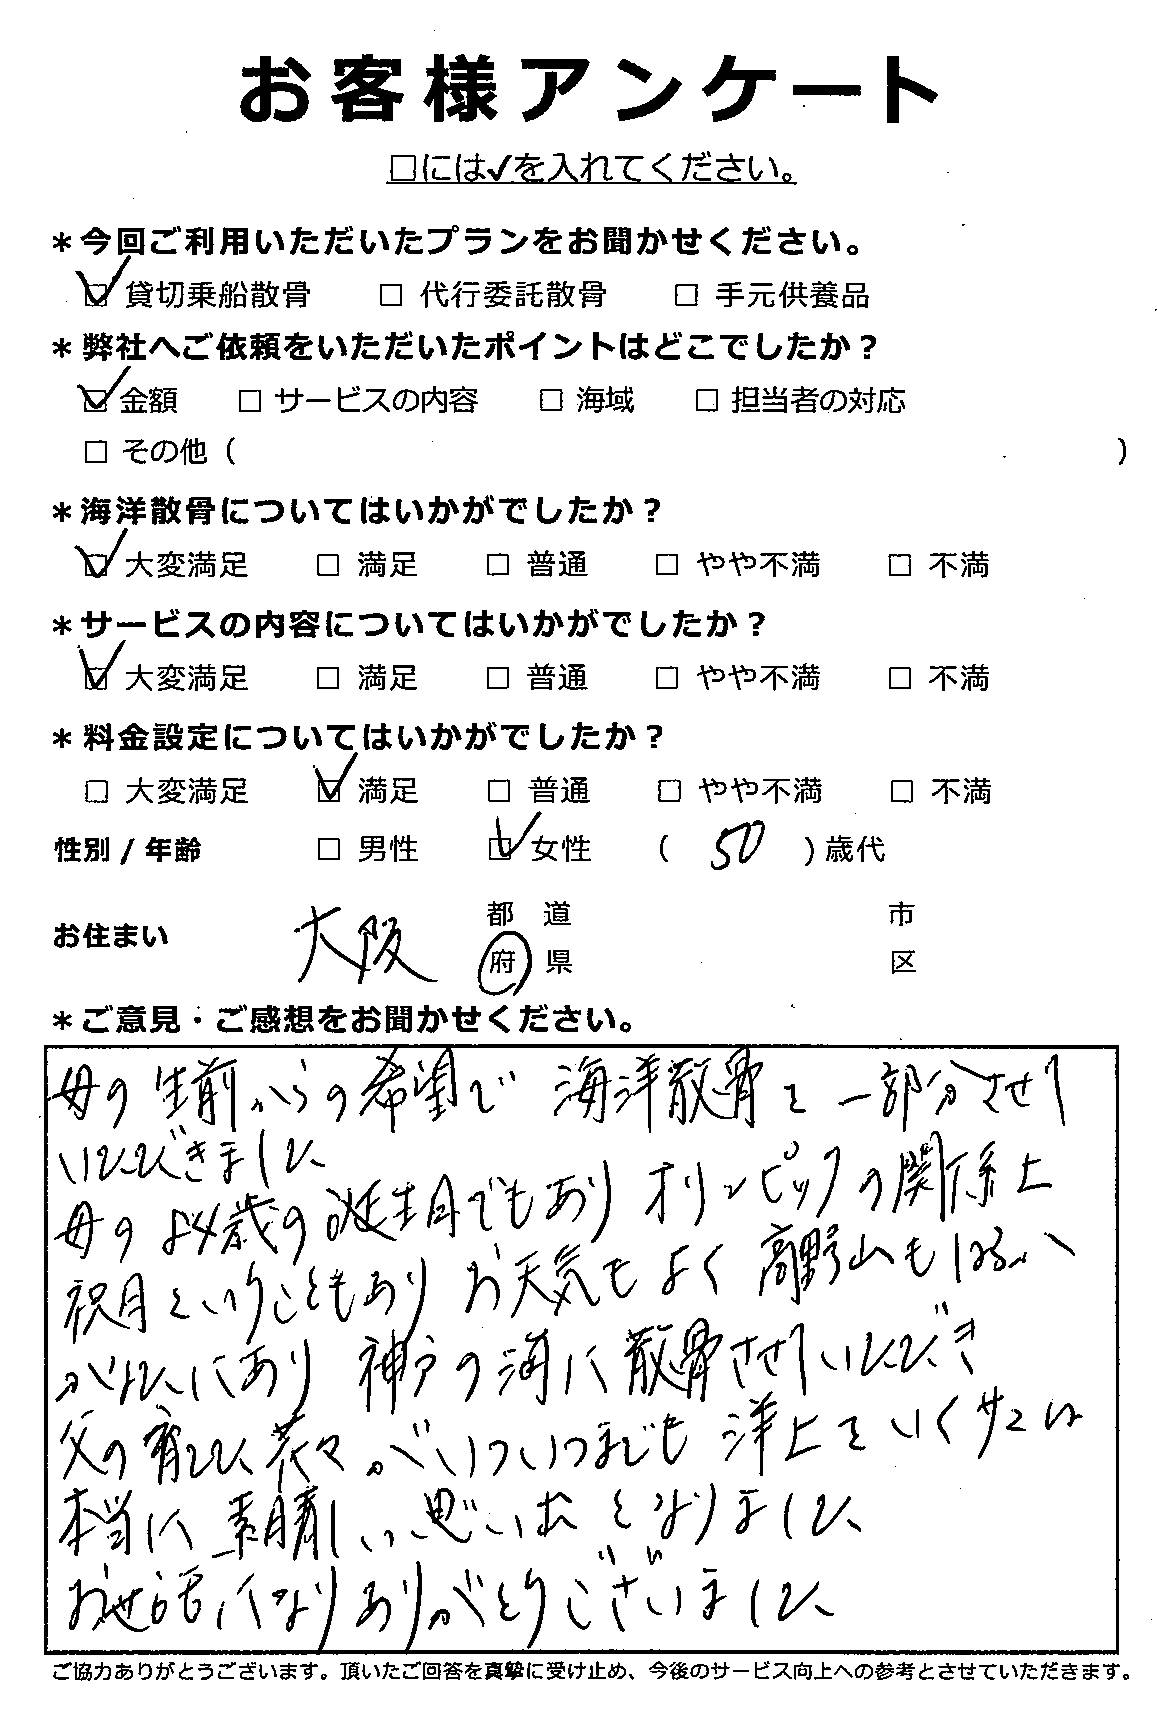 お客様アンケート
□には✓を入れてください。
＊今回ご利用いただいたプランをお聞かせください。
☑ 貸切乗船散骨　□ 代行委託散骨　□ 手元供養品
＊弊社へご依頼をいただいたポイントはどこでしたか？
☑ 金額　□ サービスの内容　□ 海域　□ 担当者の対応
□ その他（　　　）
＊海洋散骨についてはいかがでしたか？
☑ 大変満足　□ 満足　□ 普通　□ やや不満　□ 不満
＊サービスの内容についてはいかがでしたか？
☑ 大変満足　□ 満足　□ 普通　□ やや不満　□ 不満
＊料金設定についてはいかがでしたか？
□ 大変満足　☑ 満足　□ 普通　□ やや不満　□ 不満
性別 / 年齢　□ 男性　☑ 女性　（ 50 ）歳代
お住まい　大阪　都　道　府　県　市　区
＊ご意見・ご感想をお聞かせください。
母の生前からの希望で 海洋散骨を一部分させて
いただきました
母の84歳の誕生日でもあり オリンピックの関係上
祝日ということもあり お天気もよく 高野山も
あり 神戸の海に散骨させていただき
父の育てた花々がいついつまでも 洋上をいく
本当に 素晴しい思い出となりました
お世話になり ありがとうございました
ご協力ありがとうございます。頂いたご回答を真摯に受け止め、今後のサービス向上への参考とさせていただきます。